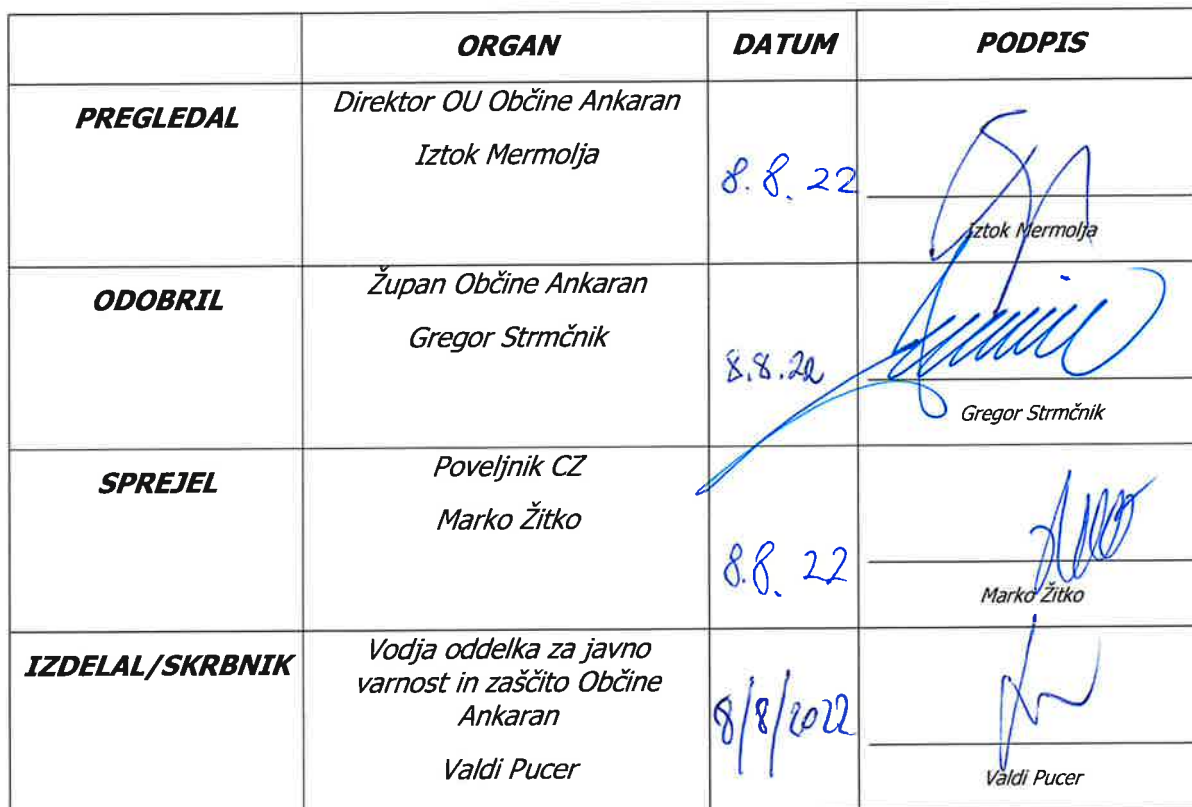 ORGAN DATUM PODPIS
PREGLEDAL
Direktor OU Občine Ankaran
Iztok Mermolja
8.8.22
Iztok Mermolja
ODOBRIL
Župan Občine Ankaran
Gregor Strmčnik
8.8.22
Gregor Strmčnik
SPREJEL
Poveljnik CZ
Marko Žitko
8.8.22
Marko Žitko
IZDELAL/SKRBNIK
Vodja oddelka za javno
varnost in zaščito Občine
Ankaran
Valdi Pucer
8/8/2022
Valdi Pucer